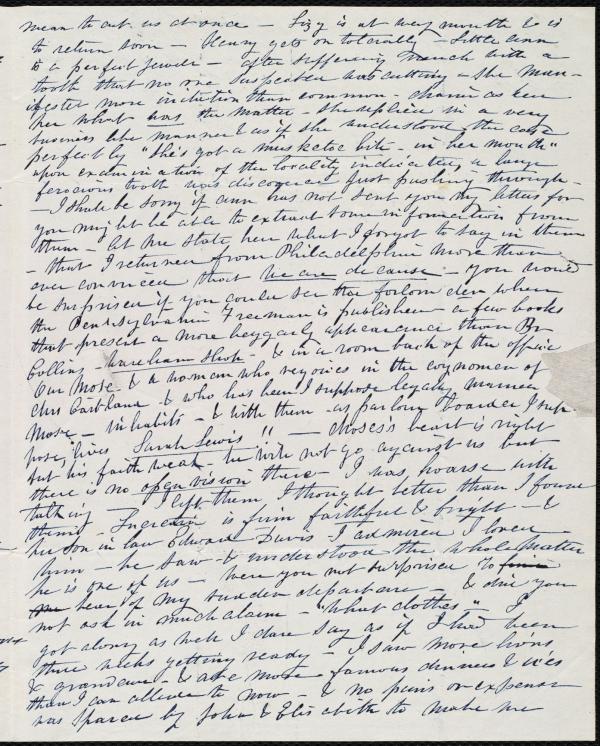 mean to cut us at once — Lizy is at Weymouth & is
to return soon — Henry gets on tolerably — Little Ann
is a perfect jewel — after suffering much with a
tooth that no one suspected was cutting — she man-
ifested more irritation than common — Annie asked
her what was the matter — she replied in a very
business like manner & as if she understood the case
perfectly "she's got a musketoe bite — in her mouth"
upon examination of the locality indicated, a large
ferocious tooth was discovered just pushing through —
— I shall be sorry if Ann has not sent you my letters for
you might be able to extract some information from
them — let me state here what I forgot to say in them
— that I returned from Philadelphia more than
ever convinced that we are de cause — you would
be surprised if you could see the forlorn den where
the Pennsylvania Freeman is published — a few books
that present a more beggarly appearance than Br
Collins — Wareham shop — & in a room back of the office
Our Mose — & a woman who rejoices in the cognomen of
Mrs Cartland — & who has been I suppose legally married
Mose — inhabits — & with them — as parlour boarder I sup-
pose, lives Sarah Lewis!! — Moses's heart is right
but his faith weak — he will not go against us but
there is no open vision there — I was hoarse with
talking I left them I thought better than I found
them — Lucretia is firm faithful & bright — &
her son in law Edward Davis I admired I loved
him — he saw & understood the whole matter
he is one of us — were you not surprised to
hear of my sudden departure — & did you
not ask in much alarm — "What clothes" — I
got along as well I dare say as if I had been
three weeks getting ready — I saw more lions
& grandeur — & ate more famous dinners & ices
than I can allude to now — & no pains or expense
was spared by John & Elisabeth to make me